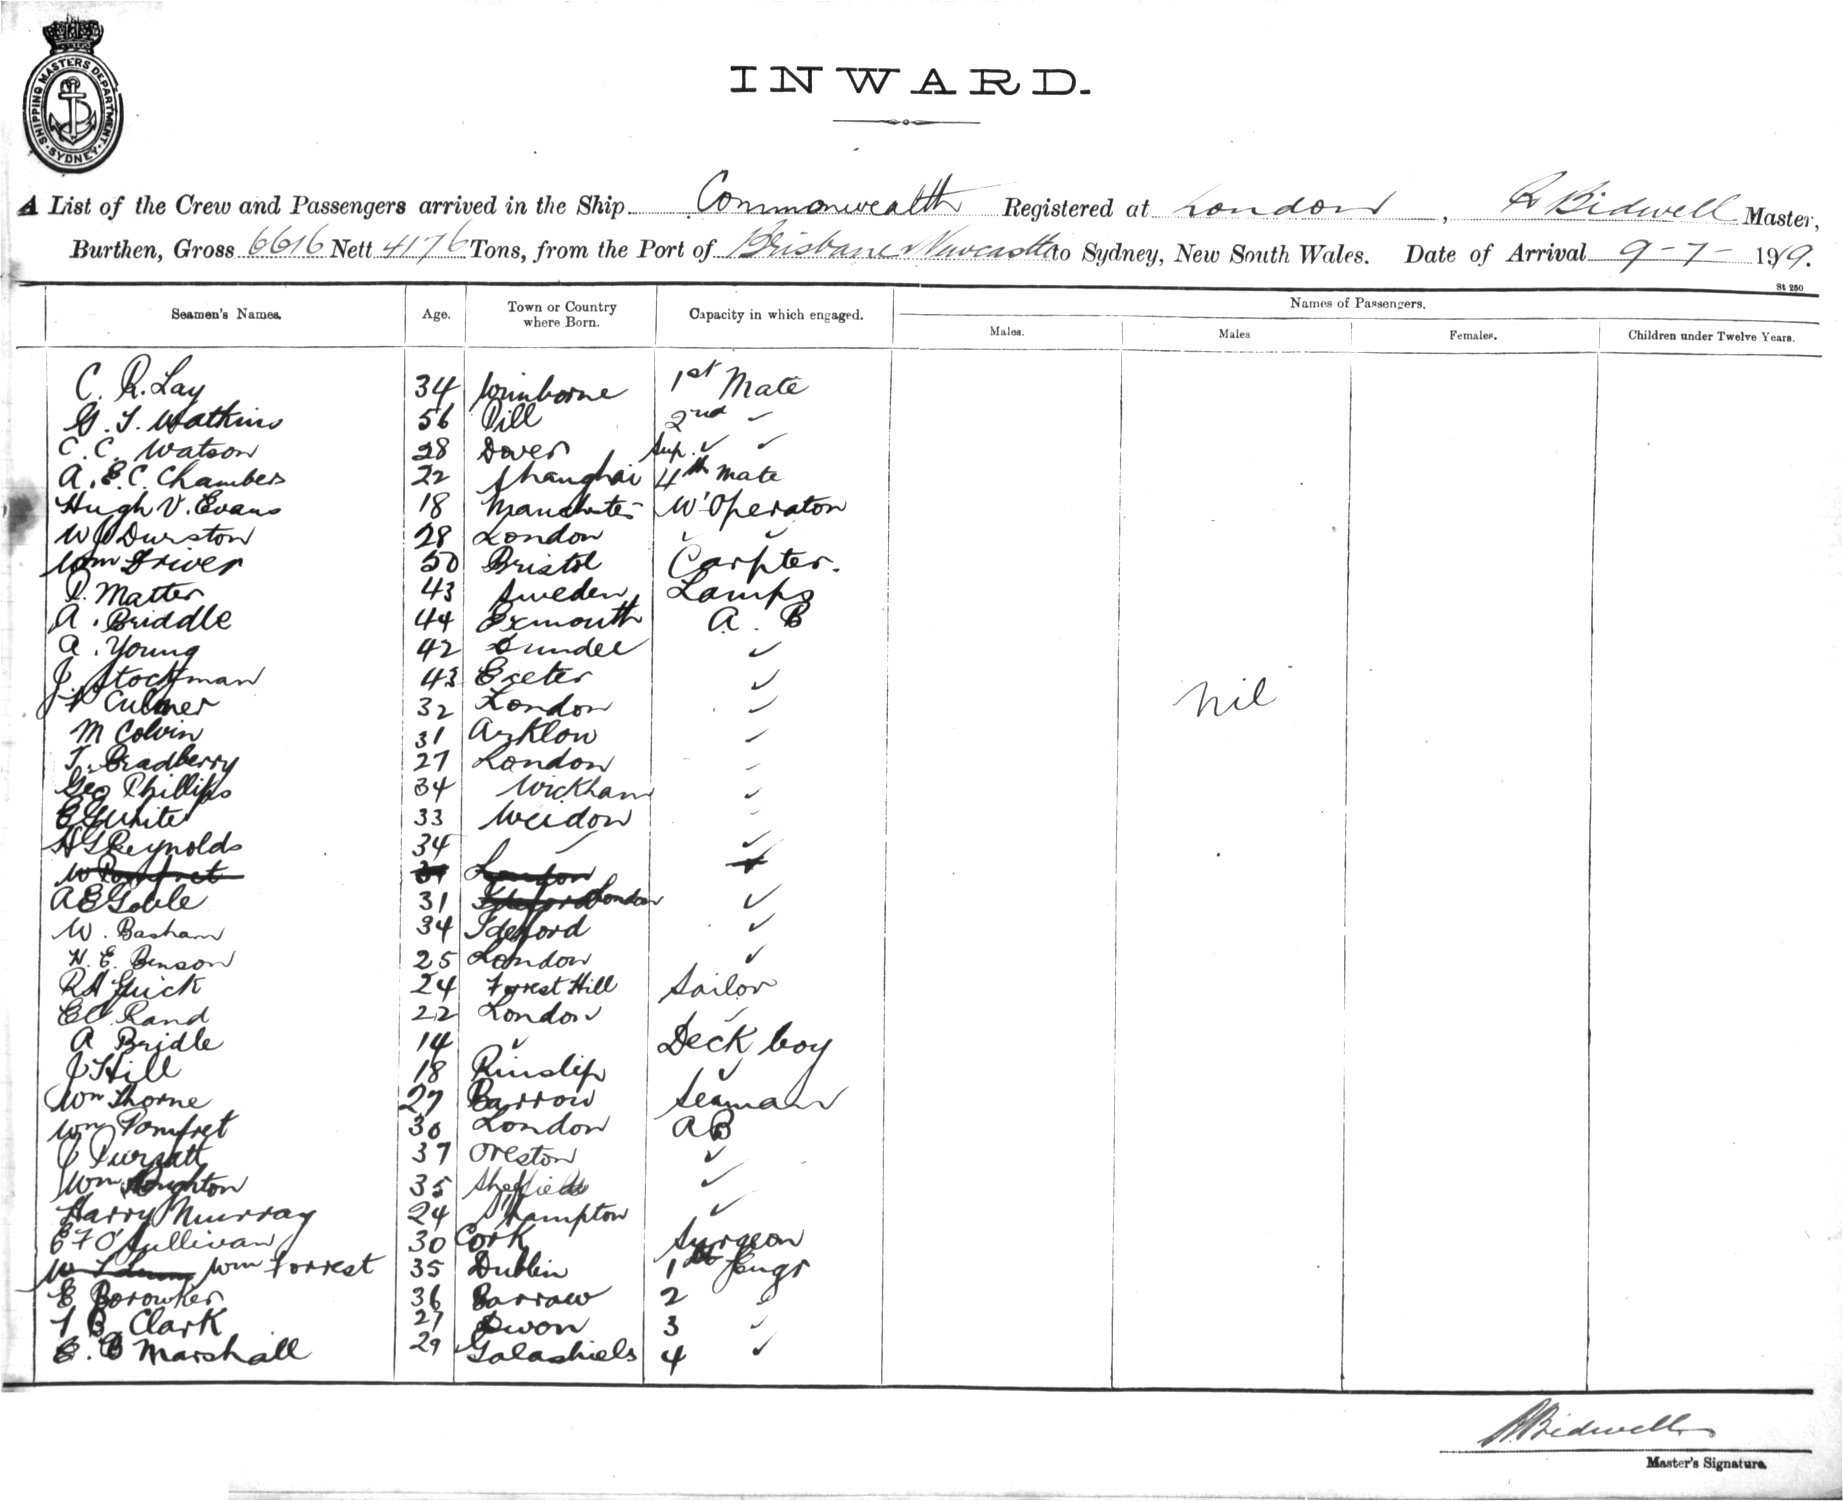 SHIPPING MASTERS DEPARTMENT. SYDNEY.
INWARD.
A List of the Crew and Passengers arrived in the Ship Commonwealth Registered at London, Bidwell Master,
Burthen, Gross 6616 Nett 4176 Tons, from the Port of Brisbane Newcastle to Sydney, New South Wales. Date of Arrival 9-7-1919.
St 250
Seamen's Names. Age. Town or Country where Born. Capacity in which engaged. Names of Passengers.
Males. Males Females. Children under Twelve Years.
C. R. Lay 34 Wimborne 1st Mate
G. T. Watkins 56 Pill 2nd ✓
C. C. Watson 28 Dover Sup. ✓ ✓
A. E. C. Chambers 22 Shanghai 4th Mate
Hugh V. Evans 18 W'Operator
W J Durston 28 London ✓ ✓
Wm Driver 50 Bristol Carpter.
P. Matter 43 Sweden Lamps
A. Briddle 44 Exmouth A. B
A. Young 42 Dundee ✓
J. Stockman 43 Exeter ✓
Culmer 32 London ✓
M Colvin 31 Arklow ✓
T. Bradberry 27 London ✓
Geo Phillips 34 Wickham ✓
E G White 33 Weedon ✓
H G Reynolds 34 ✓ ✓
W Pomfret London
A E Goble 31 London ✓
W. Basham 34 Ideford ✓
H. E. Benson 25 London ✓
R H Quick 24 Forrest Hill Sailor
E C Rand 22 London ✓
A Bridle 14 ✓ Deck boy
J Hill 18 Ruislip ✓
Wm Thorne 27 Barrow Seaman
Wm Pomfret 30 London A B
J 37 Oreston ✓
Wm 35 Sheffield ✓
Harry Murray 24 S'hampton ✓
E F O'Sullivan 30 Cork Surgeon
Wm Forrest 35 Dublin 1st Engr
E Borowker 36 Barrow 2 ✓
T B Clark 27 Devon 3 ✓
E. B Marshall 29 Galashiels 4 ✓
nil
Bidwell
Master's Signature.